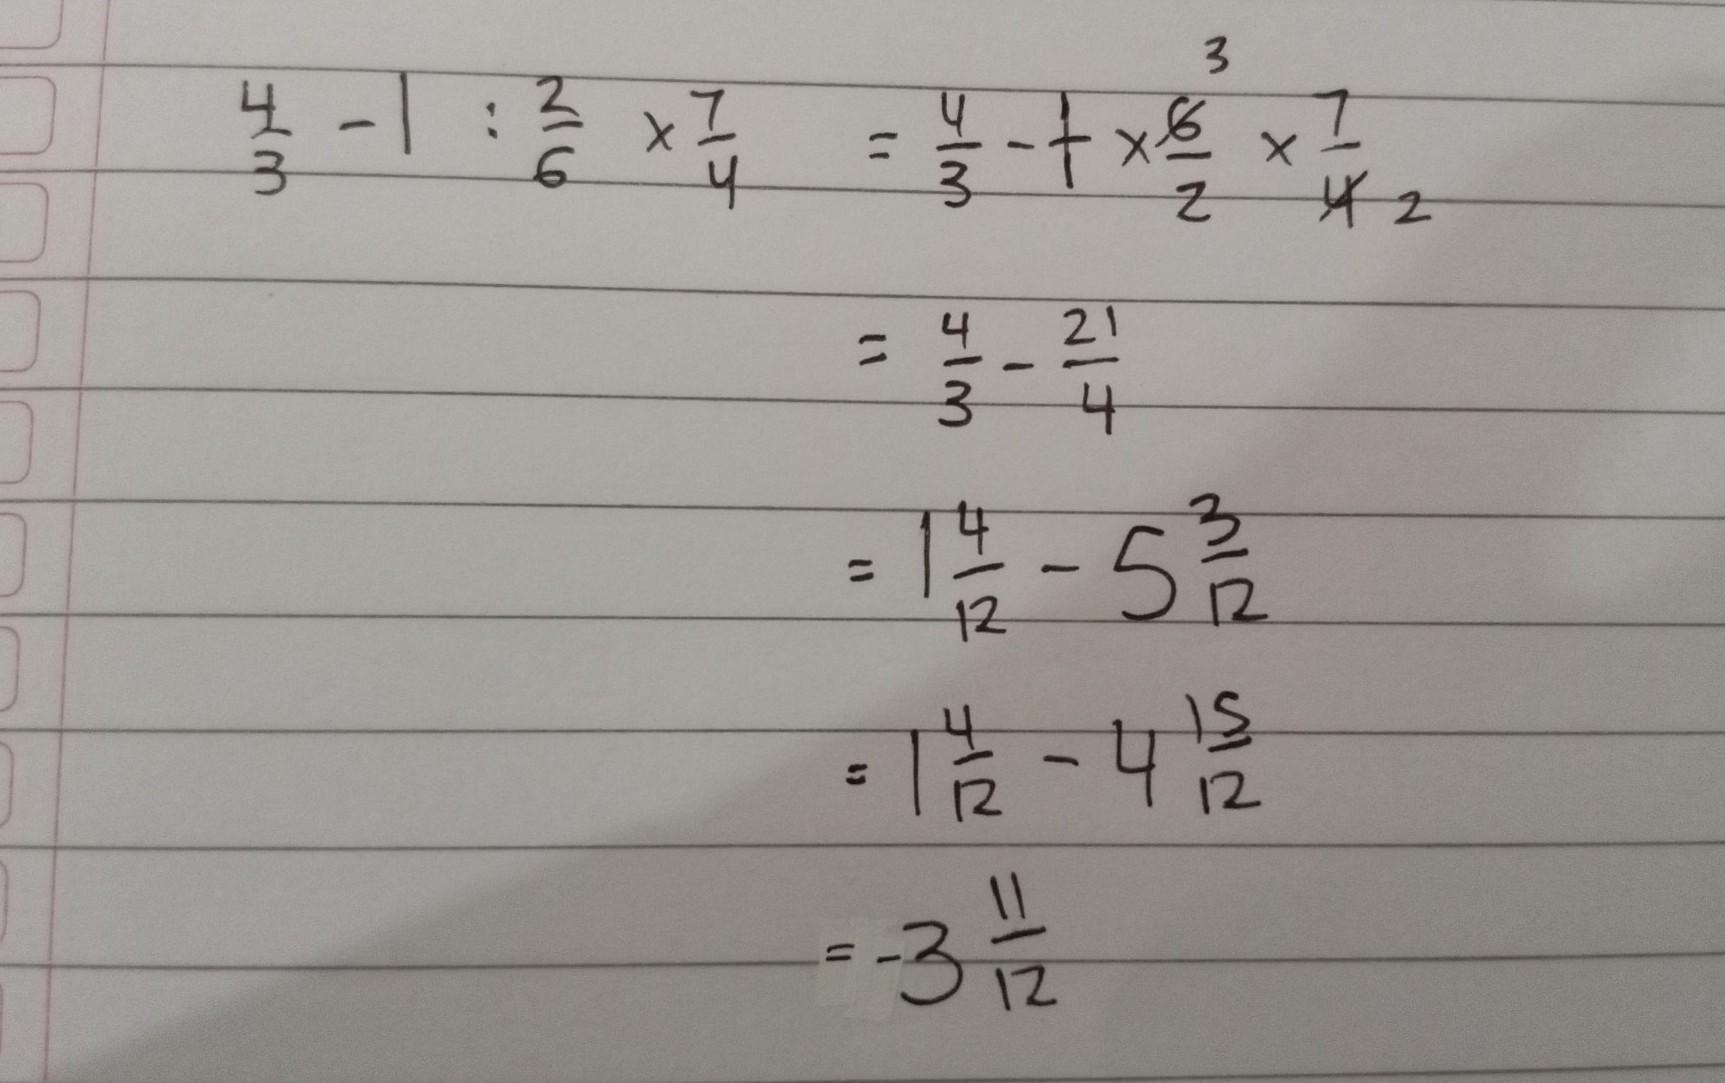 4/3 - 1 : 2/6 × 7/4 = 4/3 - 1 × 6/2 × 7/4 3 2
= 4/3 - 21/4
= 1 4/12 - 5 3/12
= 1 4/12 - 4 15/12
= -3 11/12